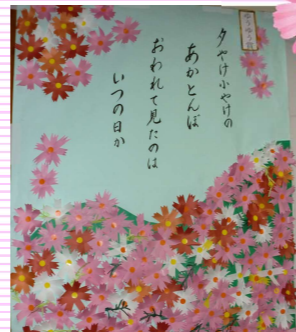 夕やけ小やけの
あかとんぼ
おわれて見たのは
いつの日か